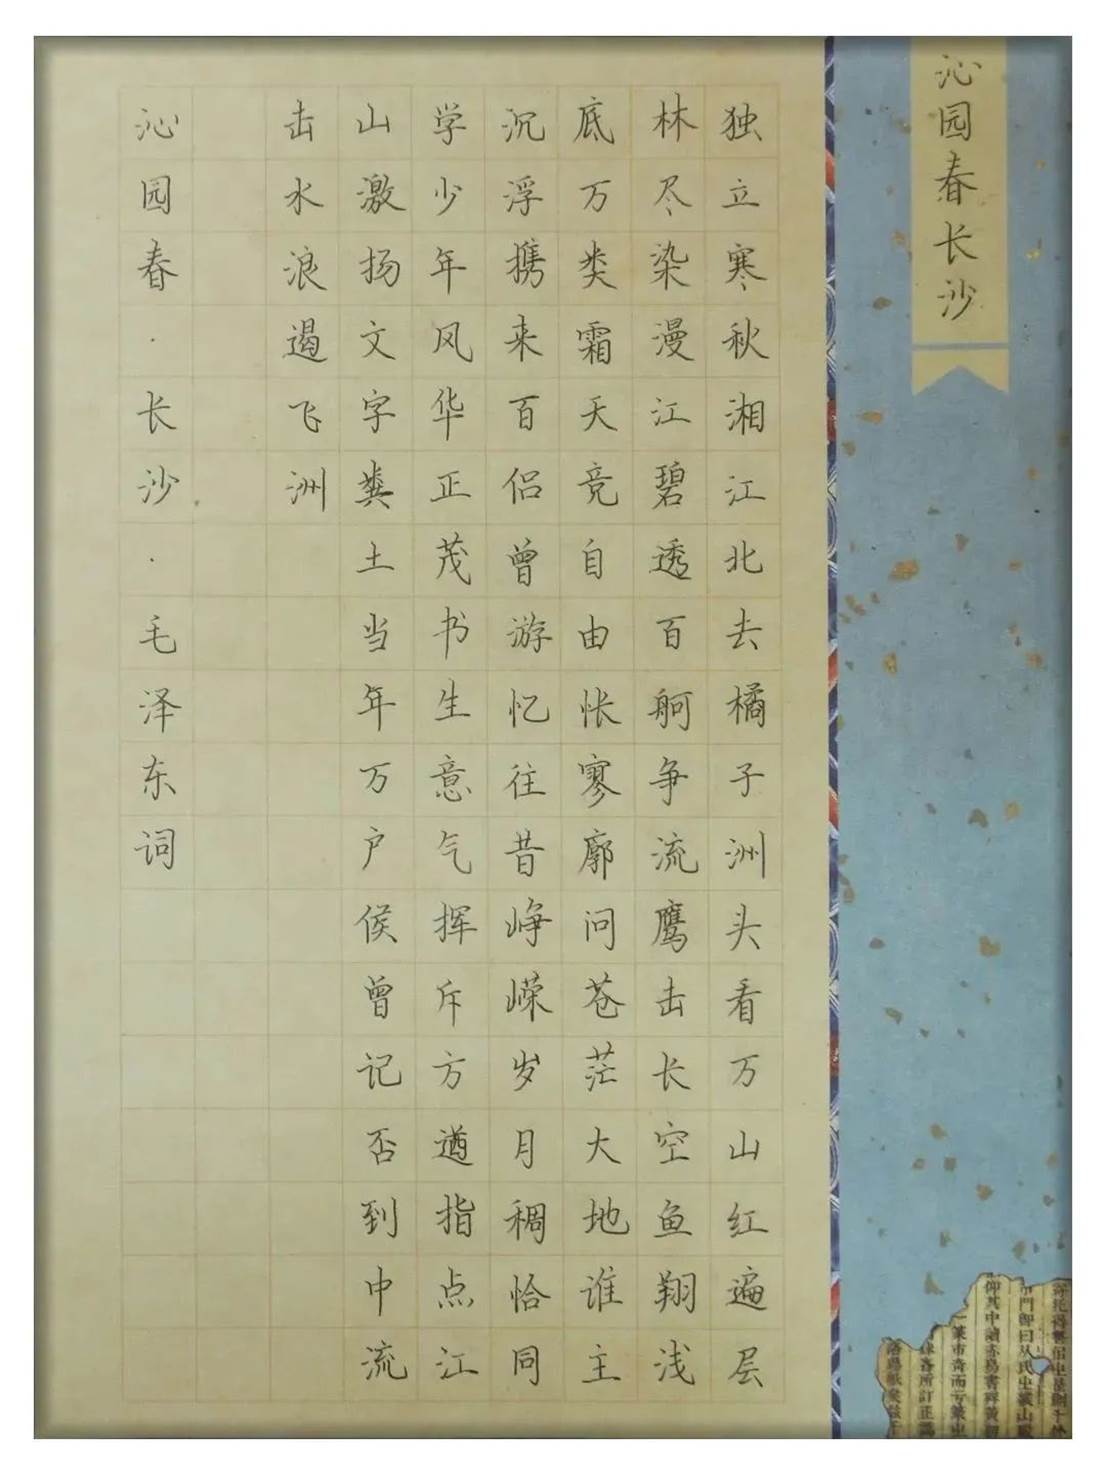 沁园春长沙
独立寒秋湘江北去橘子洲头看万山红遍层
林尽染漫江碧透百舸争流鹰击长空鱼翔浅
底万类霜天竞自由怅寥廓问苍茫大地谁主
沉浮携来百侣曾游忆往昔峥嵘岁月稠恰同
学少年风华正茂书生意气挥斥方遒指点江
山激扬文字粪土当年万户侯曾记否到中流
击水浪遏飞洲
沁园春·长沙·毛泽东词